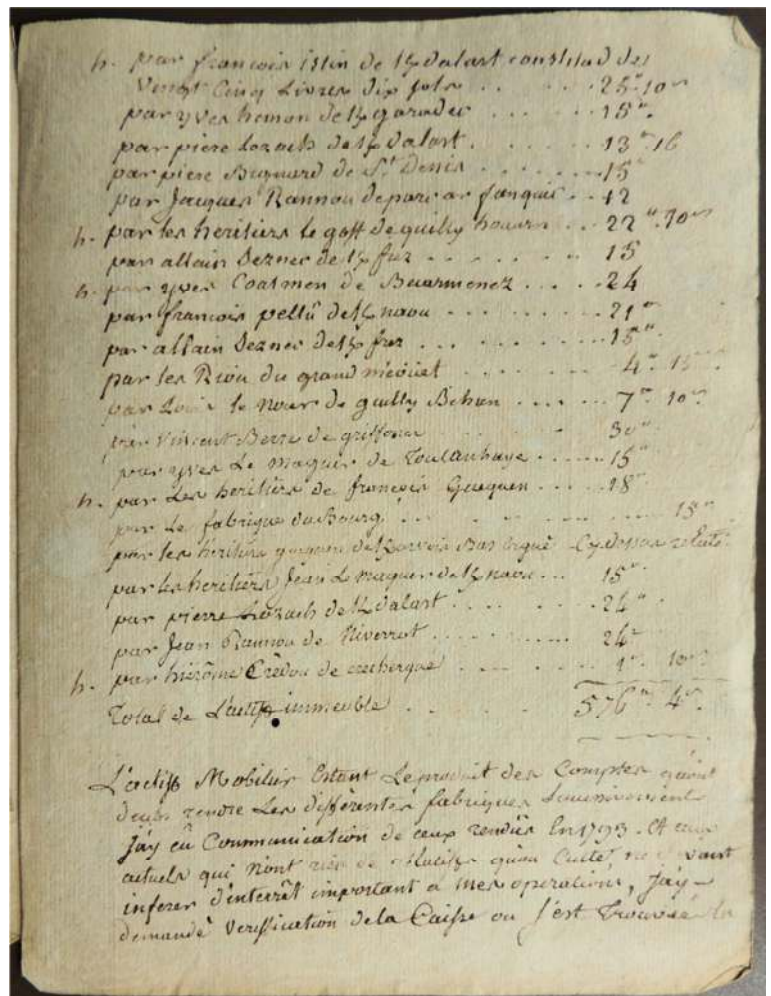 h. par francois istin de K/dalart constitud des
Vengt Cinq Livres dix sols . . . . . 25" 10s
par yves hemon de K/garadec . . . . 15"
par piere Lozach de K/dalart . . . . . 13" 16
par piere Bignard de St Denis . . . . 15"
par Jacques Rannou de parc ar fanquic . . 12
h. par les heritiers le goff de quilly houarn . . . 22" 10s
par allain Deznec de K/fuz . . . . . . 15
h. par yves Coatmen de Beuzmenez . . . . . 24
par francois pellu de K/naou . . . . . . 21"
par allain Deznec de K/fuz . . . . . . 15"
par les Riou du grand meouet . . . . . 4" 15
par Louis le Nour de guilly Behan . . . . . 7" 10s
par Vincent Berre de griffones . . . . . 30"
par yves Le maguer de Toulanhaye . . . . . 15"
h. par Les heritiers de francois Gueguen . . . . 18"
par Le fabrique du Bourg . . . . . . 15"
par les heritiers gueguen de Cy dessus relaté
par les heritiers Jean Le maguer de K/naou . . . 15"
par pierre Lozach de K/dalart . . . . . . 24"
par Jean Rannou de Niverrot . . . . . . . . 24"
h. par hierôme Credou de crecherque . . . . 1" 10s
Total de L'actif immeuble . . . . 576" 4s
L'actif Mobilier Estant Le produit des Comptes qu'ont
deubs rendre Les differentes fabriques
J'ay eû Communication de ceux rendus En 1793. Et ceux
actuels qui N'ont rien de qu'au Culte, ne devant
inferer d'interrêt important a mes operations, J'ay
demandé Verification de la Caisse ou s'est Trouvée la